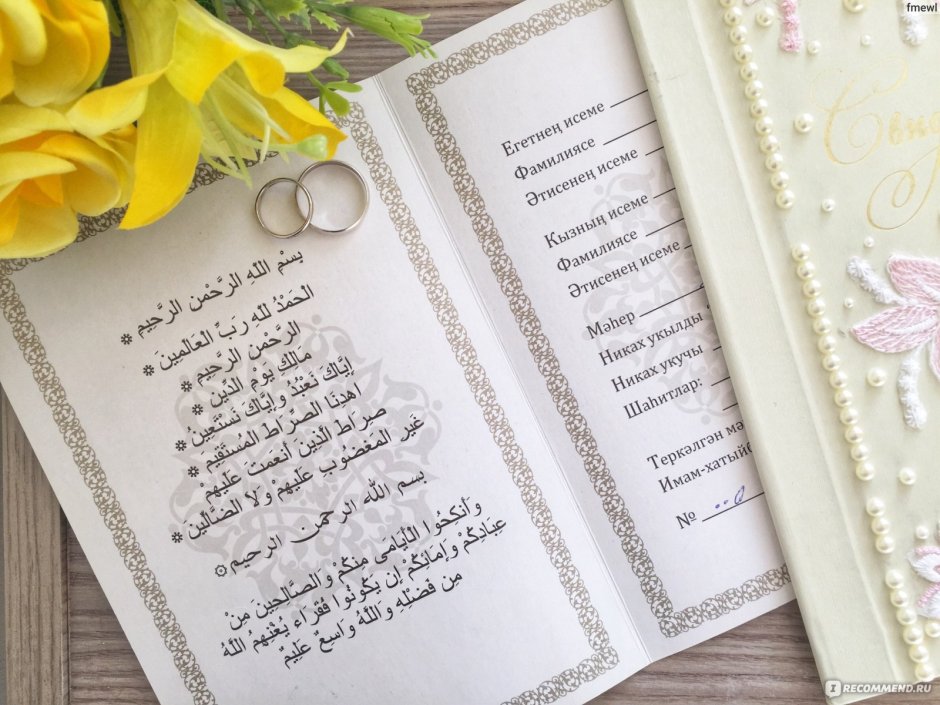 fmewl
بِسْمِ اللهِ الرَّحْمنِ الرَّحِيمِ
الحَمْدُ للهِ رَبِّ العَالَمِينَ
الرَّحْمنِ الرَّحِيمِ
مَالِكِ يَوْمِ الدِّينِ
إِيَّاكَ نَعْبُدُ وإِيَّاكَ نَسْتَعِينُ
اهدِنَا الصِّرَاطَ المُسْتَقِيمَ
صِرَاطَ الَّذِينَ أنعَمتَ عَلَيهِمْ
غَيرِ المَغضُوبِ عَلَيهِمْ وَلاَ الضَّالِّينَ
بسم الله الرحمن الرحيم
وَأَنكِحُوا الْأَيَامَى مِنكُمْ وَالصَّالِحِينَ مِنْ
عِبَادِكُمْ وَإِمَائِكُمْ إِن يَكُونُوا فُقَرَاء يُغْنِهِمُ اللَّهُ
مِن فَضْلِهِ وَاللَّهُ وَاسِعٌ عَلِيمٌ
Егетнең исеме
Фамилиясе
Әтисенең исеме
Кызның исеме
Фамилиясе
Әтисенең исеме
Мәһер
Никах укылды
Никах укучы
Шаһитлар:
Теркәлгән
Имам-хатыйб
№
I RECOMMEND.RU